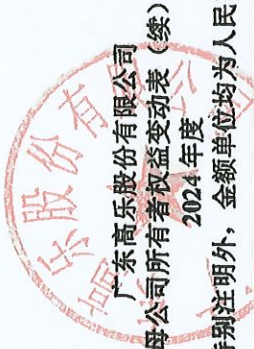 广东高乐股份有限公司
母公司所有者权益变动表（续）
2024年度
特别注明外，金额单位均为人民
乐股份有